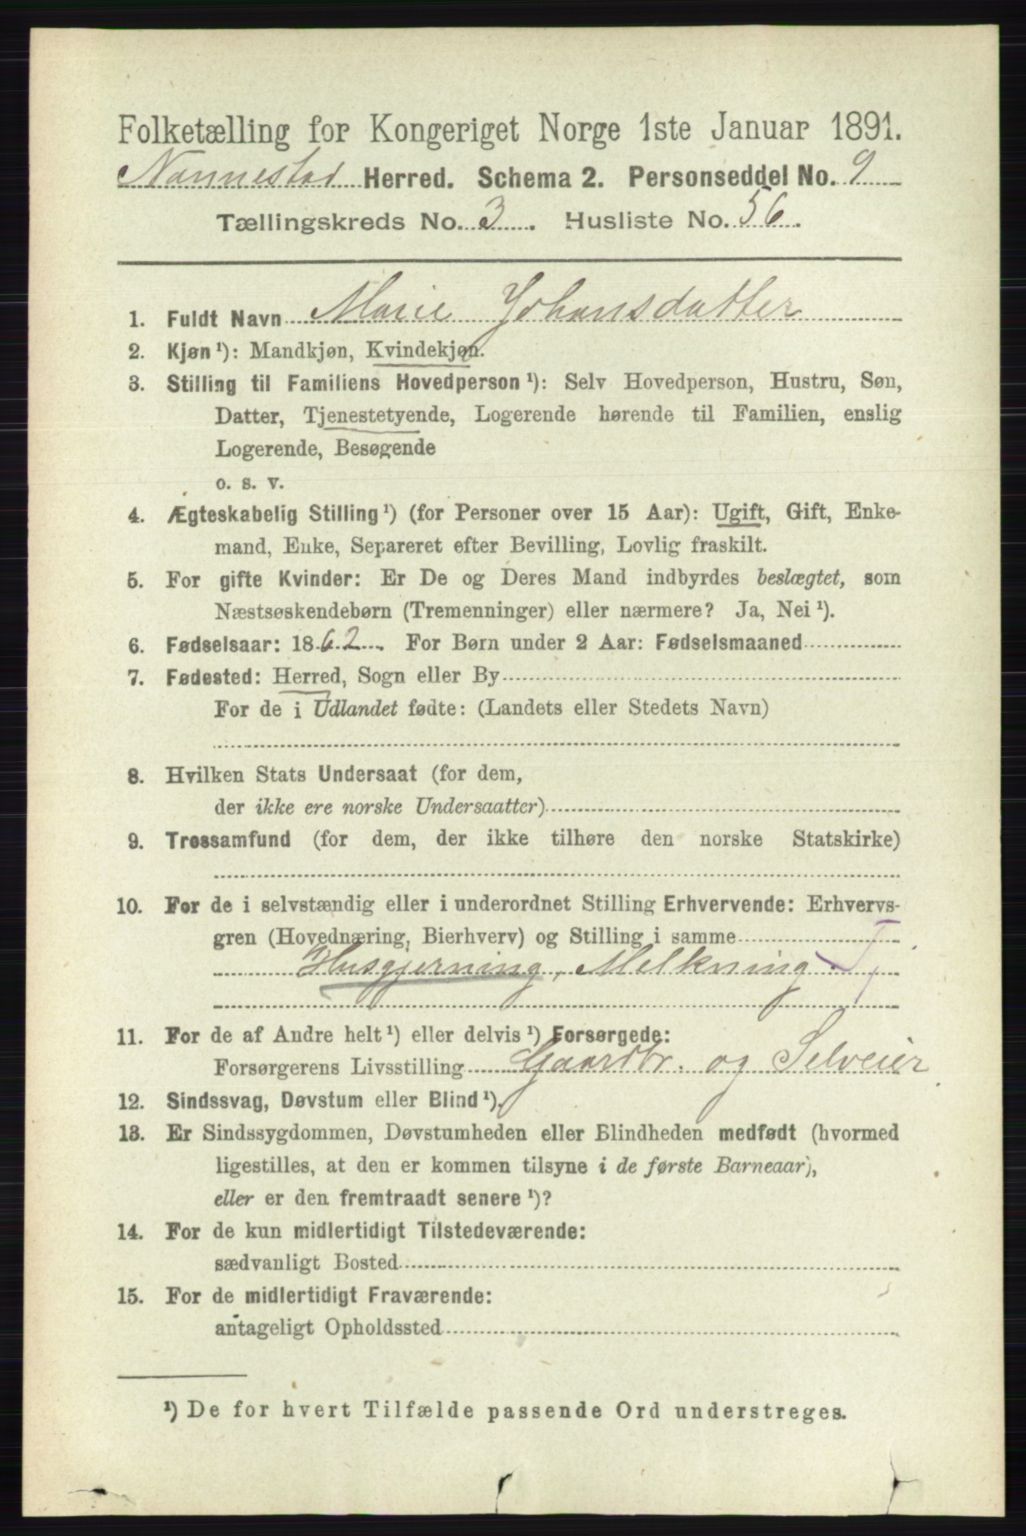 Folketælling for Kongeriget Norge 1ste Januar 1891.
Nannestad Herred. Schema 2. Personseddel No. 9
Tællingskreds No. 3. Husliste No. 56.
1. Fuldt Navn Marie Johansdatter
2. Kjøn ¹): Mandkjøn, Kvindekjøn.
3. Stilling til Familiens Hovedperson ¹): Selv Hovedperson, Hustru, Søn,
Datter, Tjenestetyende, Logerende hørende til Familien, enslig
Logerende, Besøgende
o. s. v.
4. Ægteskabelig Stilling ¹) (for Personer over 15 Aar): Ugift, Gift, Enke-
mand, Enke, Separeret efter Bevilling, Lovlig fraskilt.
5. For gifte Kvinder: Er De og Deres Mand indbyrdes beslægtet, som
Næstsøskendebørn (Tremenninger) eller nærmere? Ja, Nei ¹).
6. Fødselsaar: 1862. For Børn under 2 Aar: Fødselsmaaned
7. Fødested: Herred, Sogn eller By
For de i Udlandet fødte: (Landets eller Stedets Navn)
8. Hvilken Stats Undersaat (for dem,
der ikke ere norske Undersaatter)
9. Trossamfund (for dem, der ikke tilhøre den norske Statskirke)
10. For de i selvstændig eller i underordnet Stilling Erhvervende: Erhvervs-
gren (Hovednæring, Bierhverv) og Stilling i samme
Husgjerning, Melkning T
11. For de af Andre helt ¹) eller delvis ¹) Forsørgede:
Forsørgerens Livsstilling Gaardbr. og Selveier
12. Sindssvag, Døvstum eller Blind ¹).
13. Er Sindssygdommen, Døvstumheden eller Blindheden medfødt (hvormed
ligestilles, at den er kommen tilsyne i de første Barneaar),
eller er den fremtraadt senere ¹)?
14. For de kun midlertidigt Tilstedeværende:
sædvanligt Bosted
15. For de midlertidigt Fraværende:
antageligt Opholdssted
¹) De for hvert Tilfælde passende Ord understreges.